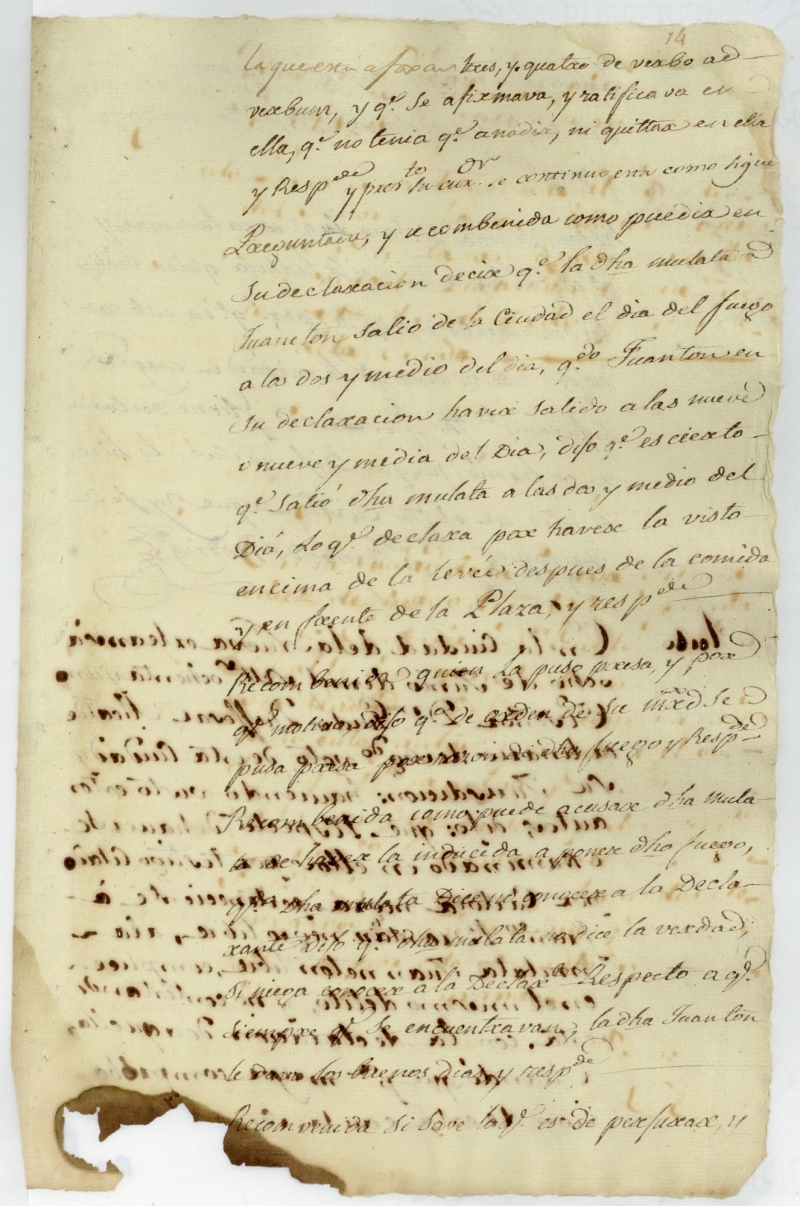 14
la que esta a foxas tres, y quatro de verbo ad
verbum, y qe. se afirmava, y ratificava en
ella, qe. no tenia qe. anadir, ni quittar en ella
y Respde y por to su cur.or se continuo esta como sigue
Preguntada, y recombenida como puedia en
su declaracion decir qe. la dha mulata
Juaneton salio de la Ciudad el dia del fuego
a las dos y medio del dia, qdo Juanton en
su declaracion haver salido a las nueve
o nueve y media del Dia, dijo qe. es cierto
qe. salió dha mulata a las dos y medio del
Diá, Lo qe. declara por haverse la visto
encima de la levée despues de la comida
y en frente de la Plaza, y respde
Recombenida quien la puso presa, y por
qe. motivo, dijo qe. de orden de su mrxd se
puso presa por razon de dho fuego y Respde
Recombenida como puede acusar dha mula-
ta de haver la inducida a poner dho fuego,
qdo. dha mulata Dice no conocer a la Decla-
rante dijo qe. dha mulata no dice la verdad,
si niega conocer a la Declarte Respecto a qe.
siempre qe. se encuentravan, la dha Juanton
le dava los buenos dias y respde
Reconvenida si save lo qe. es de perjurar, y